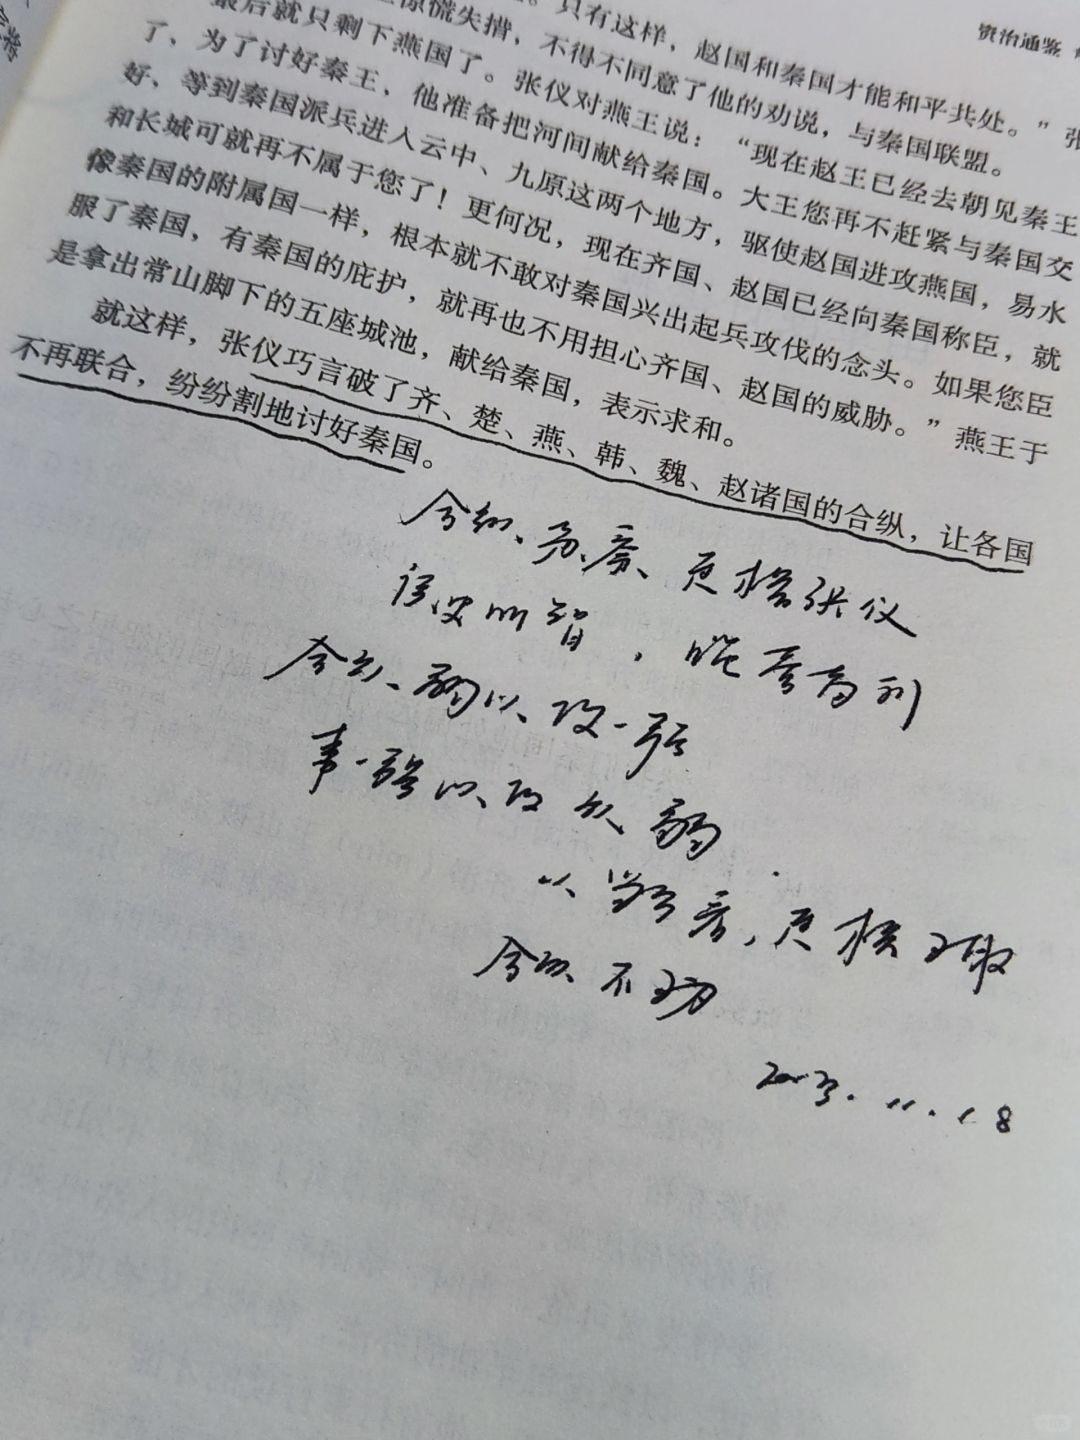 资治通鉴
惊慌失措，不得不同意了他的劝说，与秦国联盟。
只有这样，赵国和秦国才能和平共处。”
最后就只剩下燕国了。张仪对燕王说：“现在赵王已经去朝见秦王
了，为了讨好秦王，他准备把河间献给秦国。大王您再不赶紧与秦国交
好，等到秦国派兵进入云中、九原这两个地方，驱使赵国进攻燕国，易水
和长城可就再不属于您了！更何况，现在齐国、赵国已经向秦国称臣，就
像秦国的附属国一样，根本就不敢对秦国兴出起兵攻伐的念头。如果您臣
服了秦国，有秦国的庇护，就再也不用担心齐国、赵国的威胁。”燕王于
是拿出常山脚下的五座城池，献给秦国，表示求和。
就这样，张仪巧言破了齐、楚、燕、韩、魏、赵诸国的合纵，让各国
不再联合，纷纷割地讨好秦国。
合纵、苏秦、连横张仪
读史明智，
合众弱以攻一强
事一强以攻众弱
连横
合纵不
2023.11.18